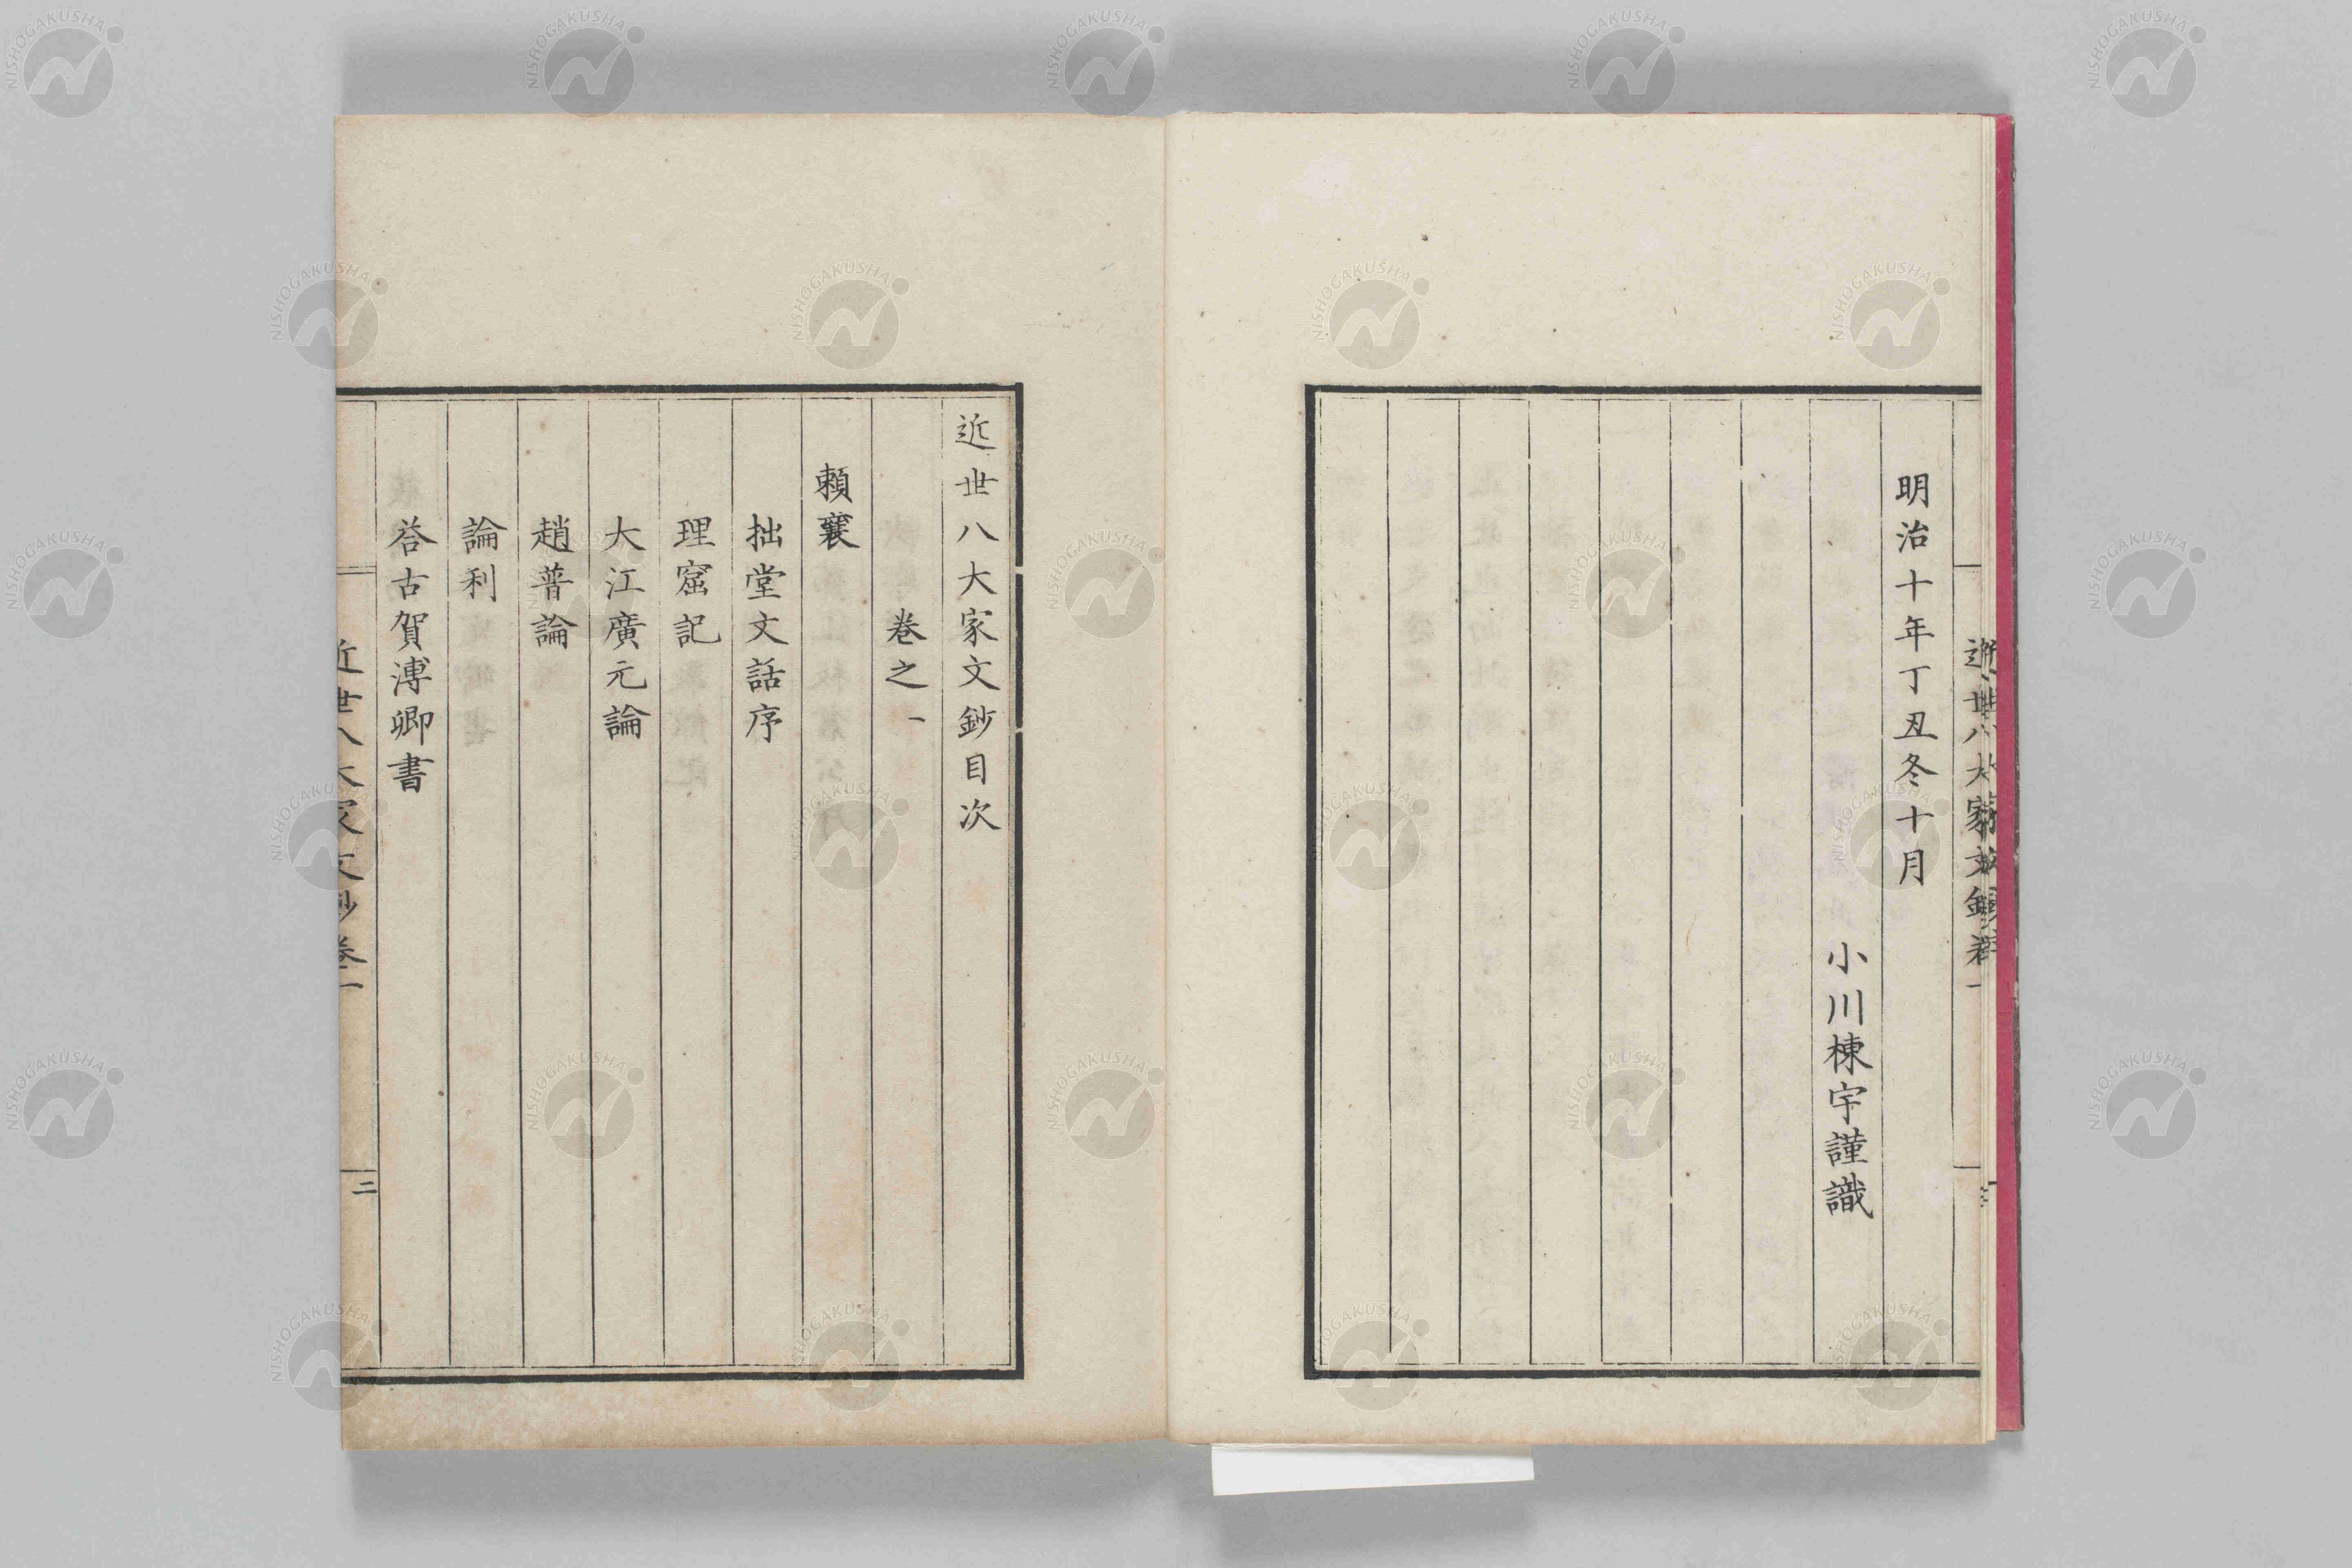 明治十年丁丑冬十月
小川棟宇謹識
近世八大家文鈔目次
卷之一
賴襄
拙堂文話序
理窟記
大江廣元論
趙普論
論利
荅古賀溥卿書
近世八大家文鈔卷一
二
NISHOGAKUSHA